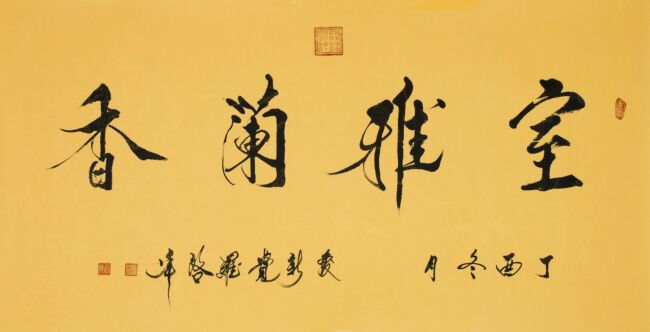 室雅蘭香
丁酉冬月 愛新覺羅啓